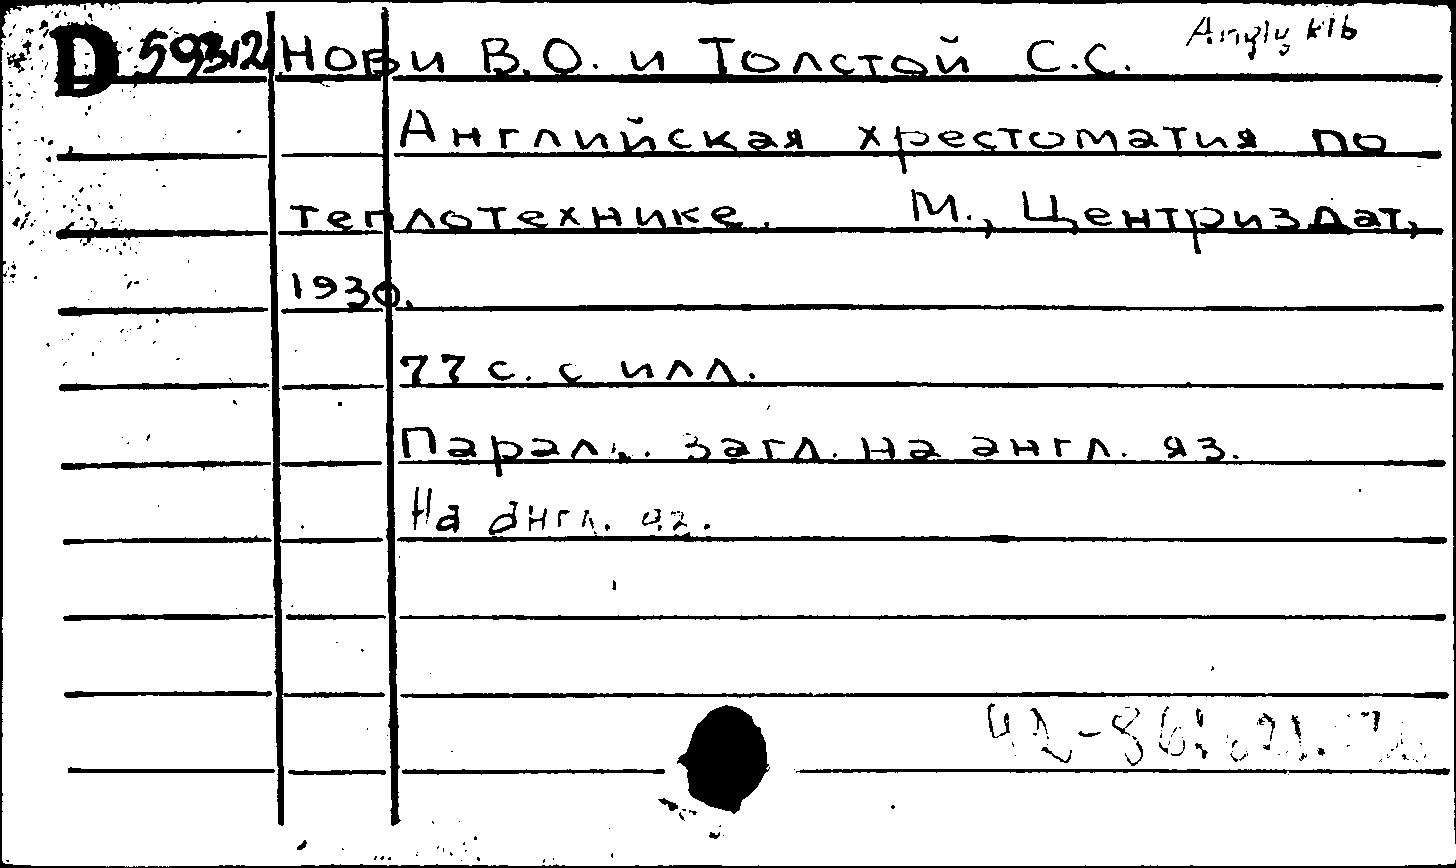 D 59312 Нови В.О. и Толстой С.С.
Английская хрестоматия по
теплотехнике. М., Центриздат,
1930.
77 с. с илл.
Парал. загл. на англ. яз.
На англ. яз.